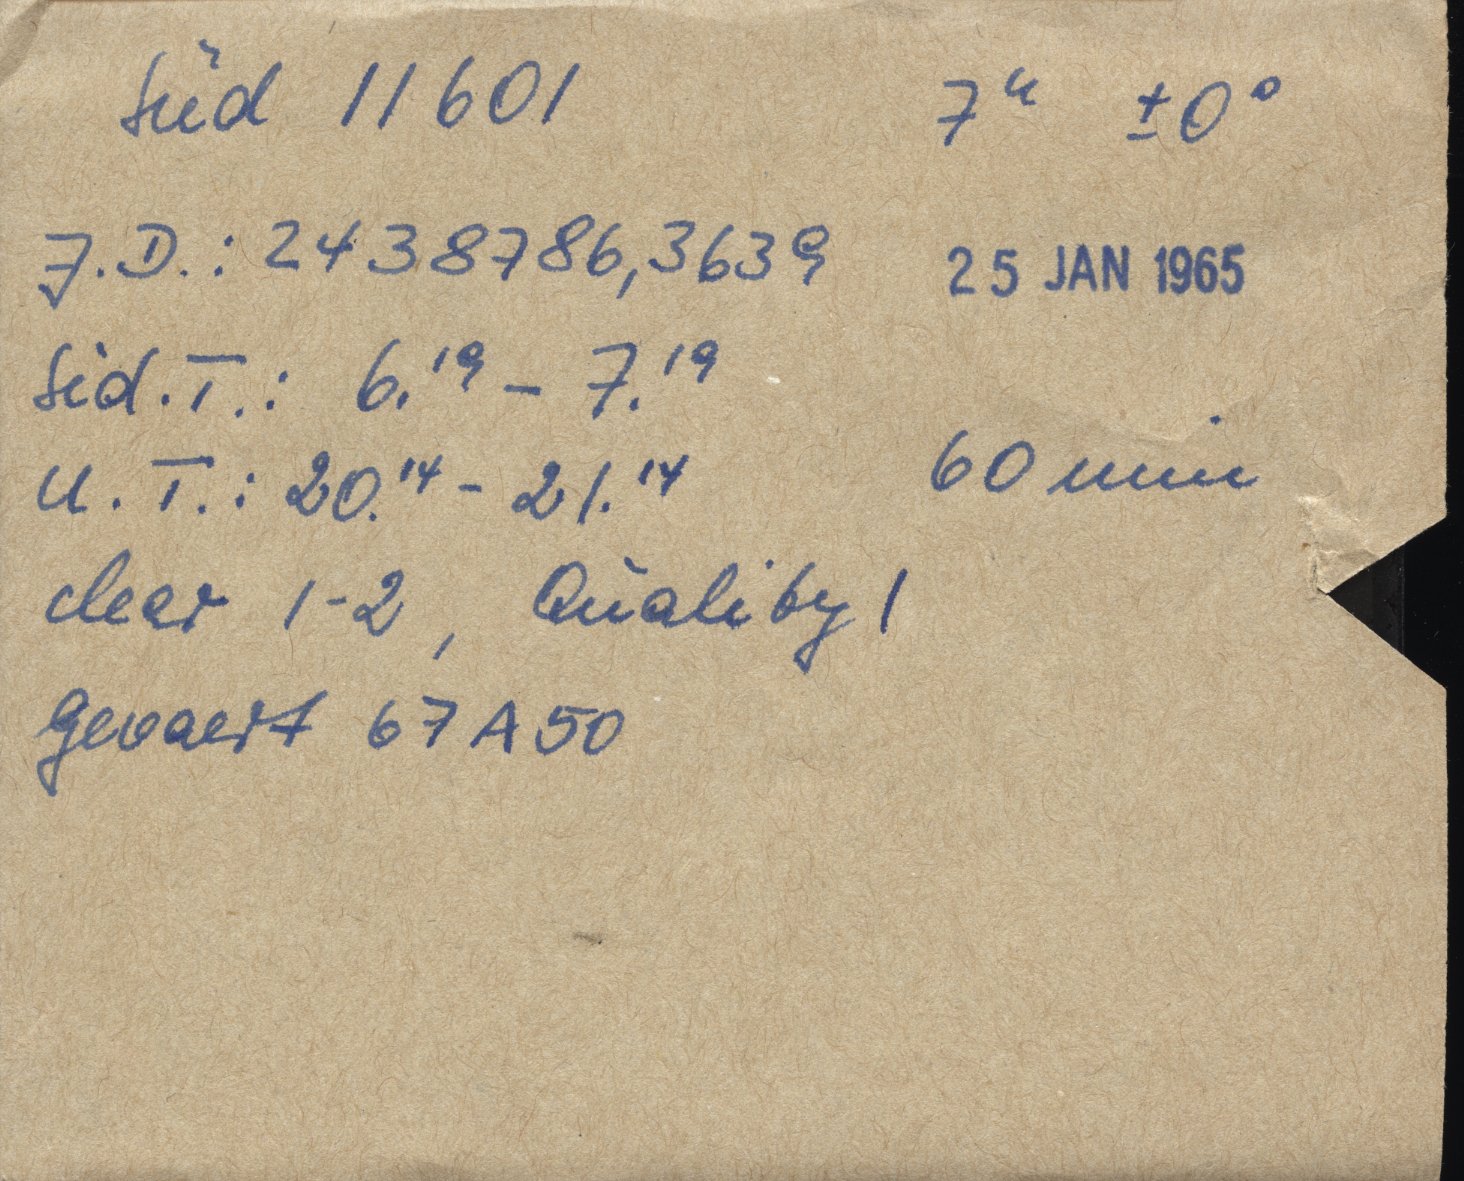 Süd 11601 7ᵘ ±0°
J.D.: 2438786,3639 25 JAN 1965
Sid.T.: 6.¹⁹ - 7.¹⁹
U.T.: 20.¹⁴ - 21.¹⁴ 60 min
clear 1-2, Quality 1
Gevaert 67A50